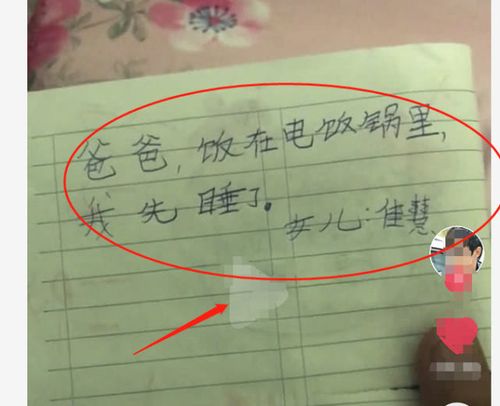 爸爸,饭在电饭锅里,
我先睡了。
女儿:佳慧